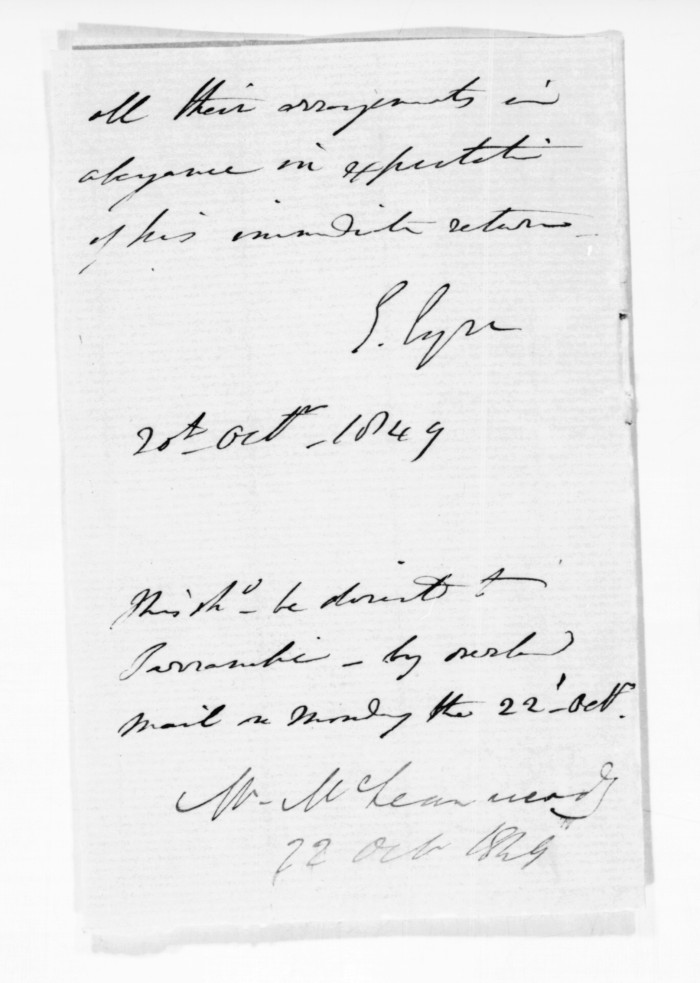 all their arrangements in
abeyance in expectation
of his immediate return
E. Eyre
20th Octr - 1849
This shd - be direct to
by overland
mail on Monday the 22d Octr.
Mr McLean
22 Oct 1849